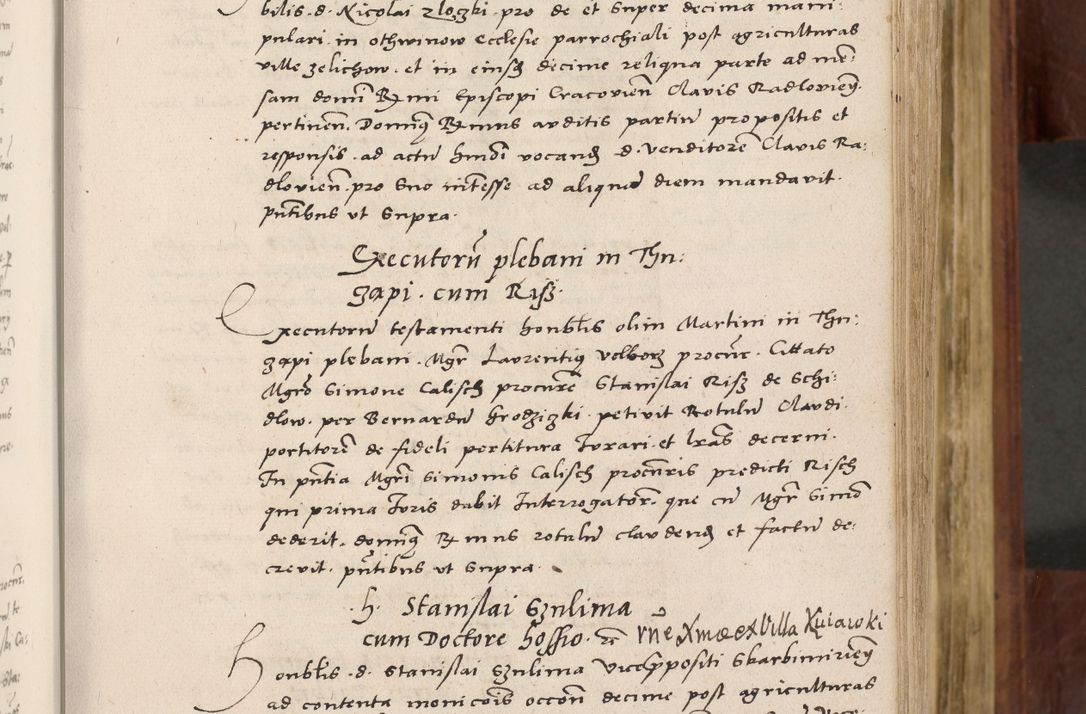 bilis d. Nicolai zloczki pro de et super decima mani:
pulari in othwinow Ecclesie parrochiali post agriculturas
ville zelichow. et in eiusq decime reliqua parte ad men:
sam domni Rmi Episcopi Cracovien Clavis Radlovien.
pertinen. Domnus Rmus auditis partium propositis et
responsis ad actum hmoi vocand d. venditorem Clavis Ra:
dlovien. pro suo interesse ad aliquam diem mandavit.
pntibus ut supra.
Executorum plebani in Thu:
zapi. cum Risz.
Executorum testamenti honblis olim Martini in Thu:
zapi plebani. Mgr Laurentius velborz procur. Cittato
Mgro Simone Calisch procure Stanislai Risz de Schi:
dlow. per Bernardum Grodziczki petivit Rotulum Claudi.
portitorem de fideli portitura Jurari. et lras decerni.
In pntia Mgri Simonis Calisch procuris predicti Risch
qui prima Juris dabit Interrogator. que cum Mgr Simon
dederit. domnus Rmus rotulum claudend et factum de:
crevit. pntibus ut supra.
h. Stanislai Sznlima
cum Doctore hossio. rne Xmæ ex Villa Kuiawki
Honblis d. Stanislai Sznlima vicepposti Skarbimirien
ad contenta monicois occon decime post agriculturas